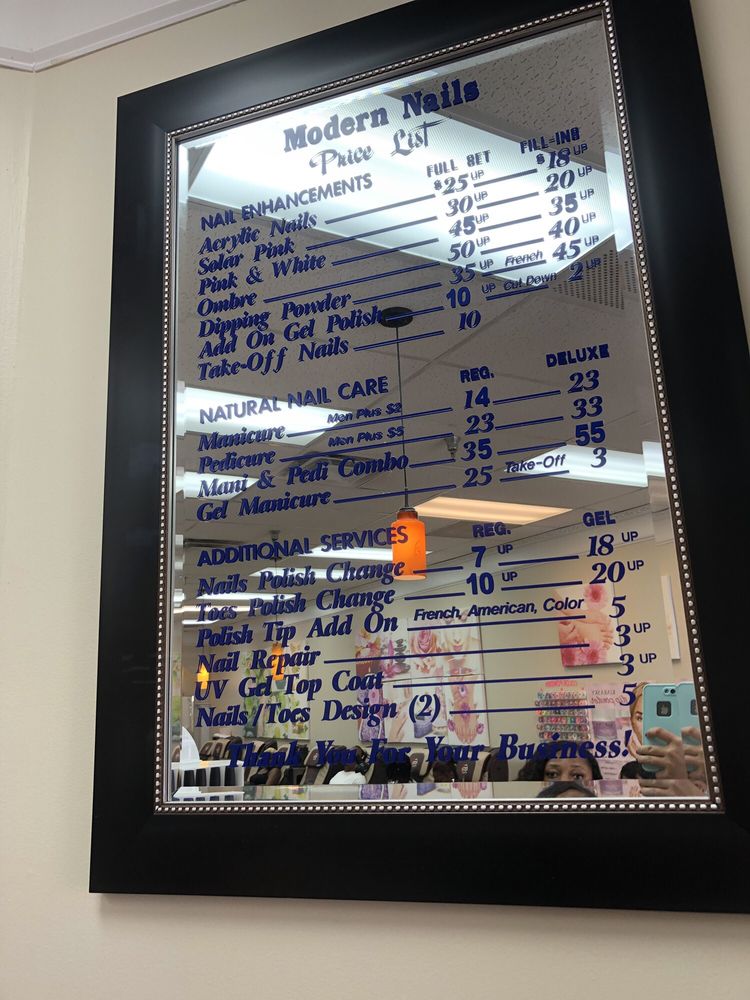 Modern Nails
Price List
NAIL ENHANCEMENTS FULL SET FILL-INS
Acrylic Nails $25 UP $18 UP
Solar Pink 30 UP 20 UP
Pink & White 45 UP 35 UP
Ombre 50 UP 40 UP
Dipping Powder 35 UP French 45 UP
Add On Gel Polish 10 UP Cut Down 2 UP
Take-Off Nails 10
NATURAL NAIL CARE REG. DELUXE
Manicure Men Plus $2 14 23
Pedicure Men Plus $5 23 33
Mani & Pedi Combo 35 55
Gel Manicure 25 Take-Off 3
ADDITIONAL SERVICES REG. GEL
Nails Polish Change 7 UP 18 UP
Toes Polish Change 10 UP 20 UP
Polish Tip Add On French, American, Color 5
Nail Repair 3 UP
UV Gel Top Coat 3 UP
Nails/Toes Design (2) 5
Thank You For Your Business!